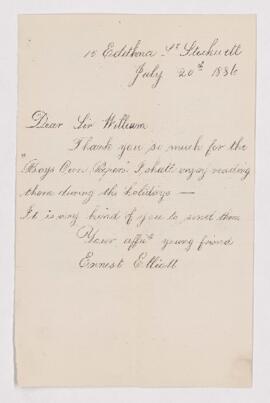 15 Edithna St Stockwell
July 20th 1886
Dear Sir William
Thank you so much for the
"Boys Own Papers" I shall enjoy reading
them during the holidays —
It is very kind of you to send them
Your affte young friend
Ernest Elliott